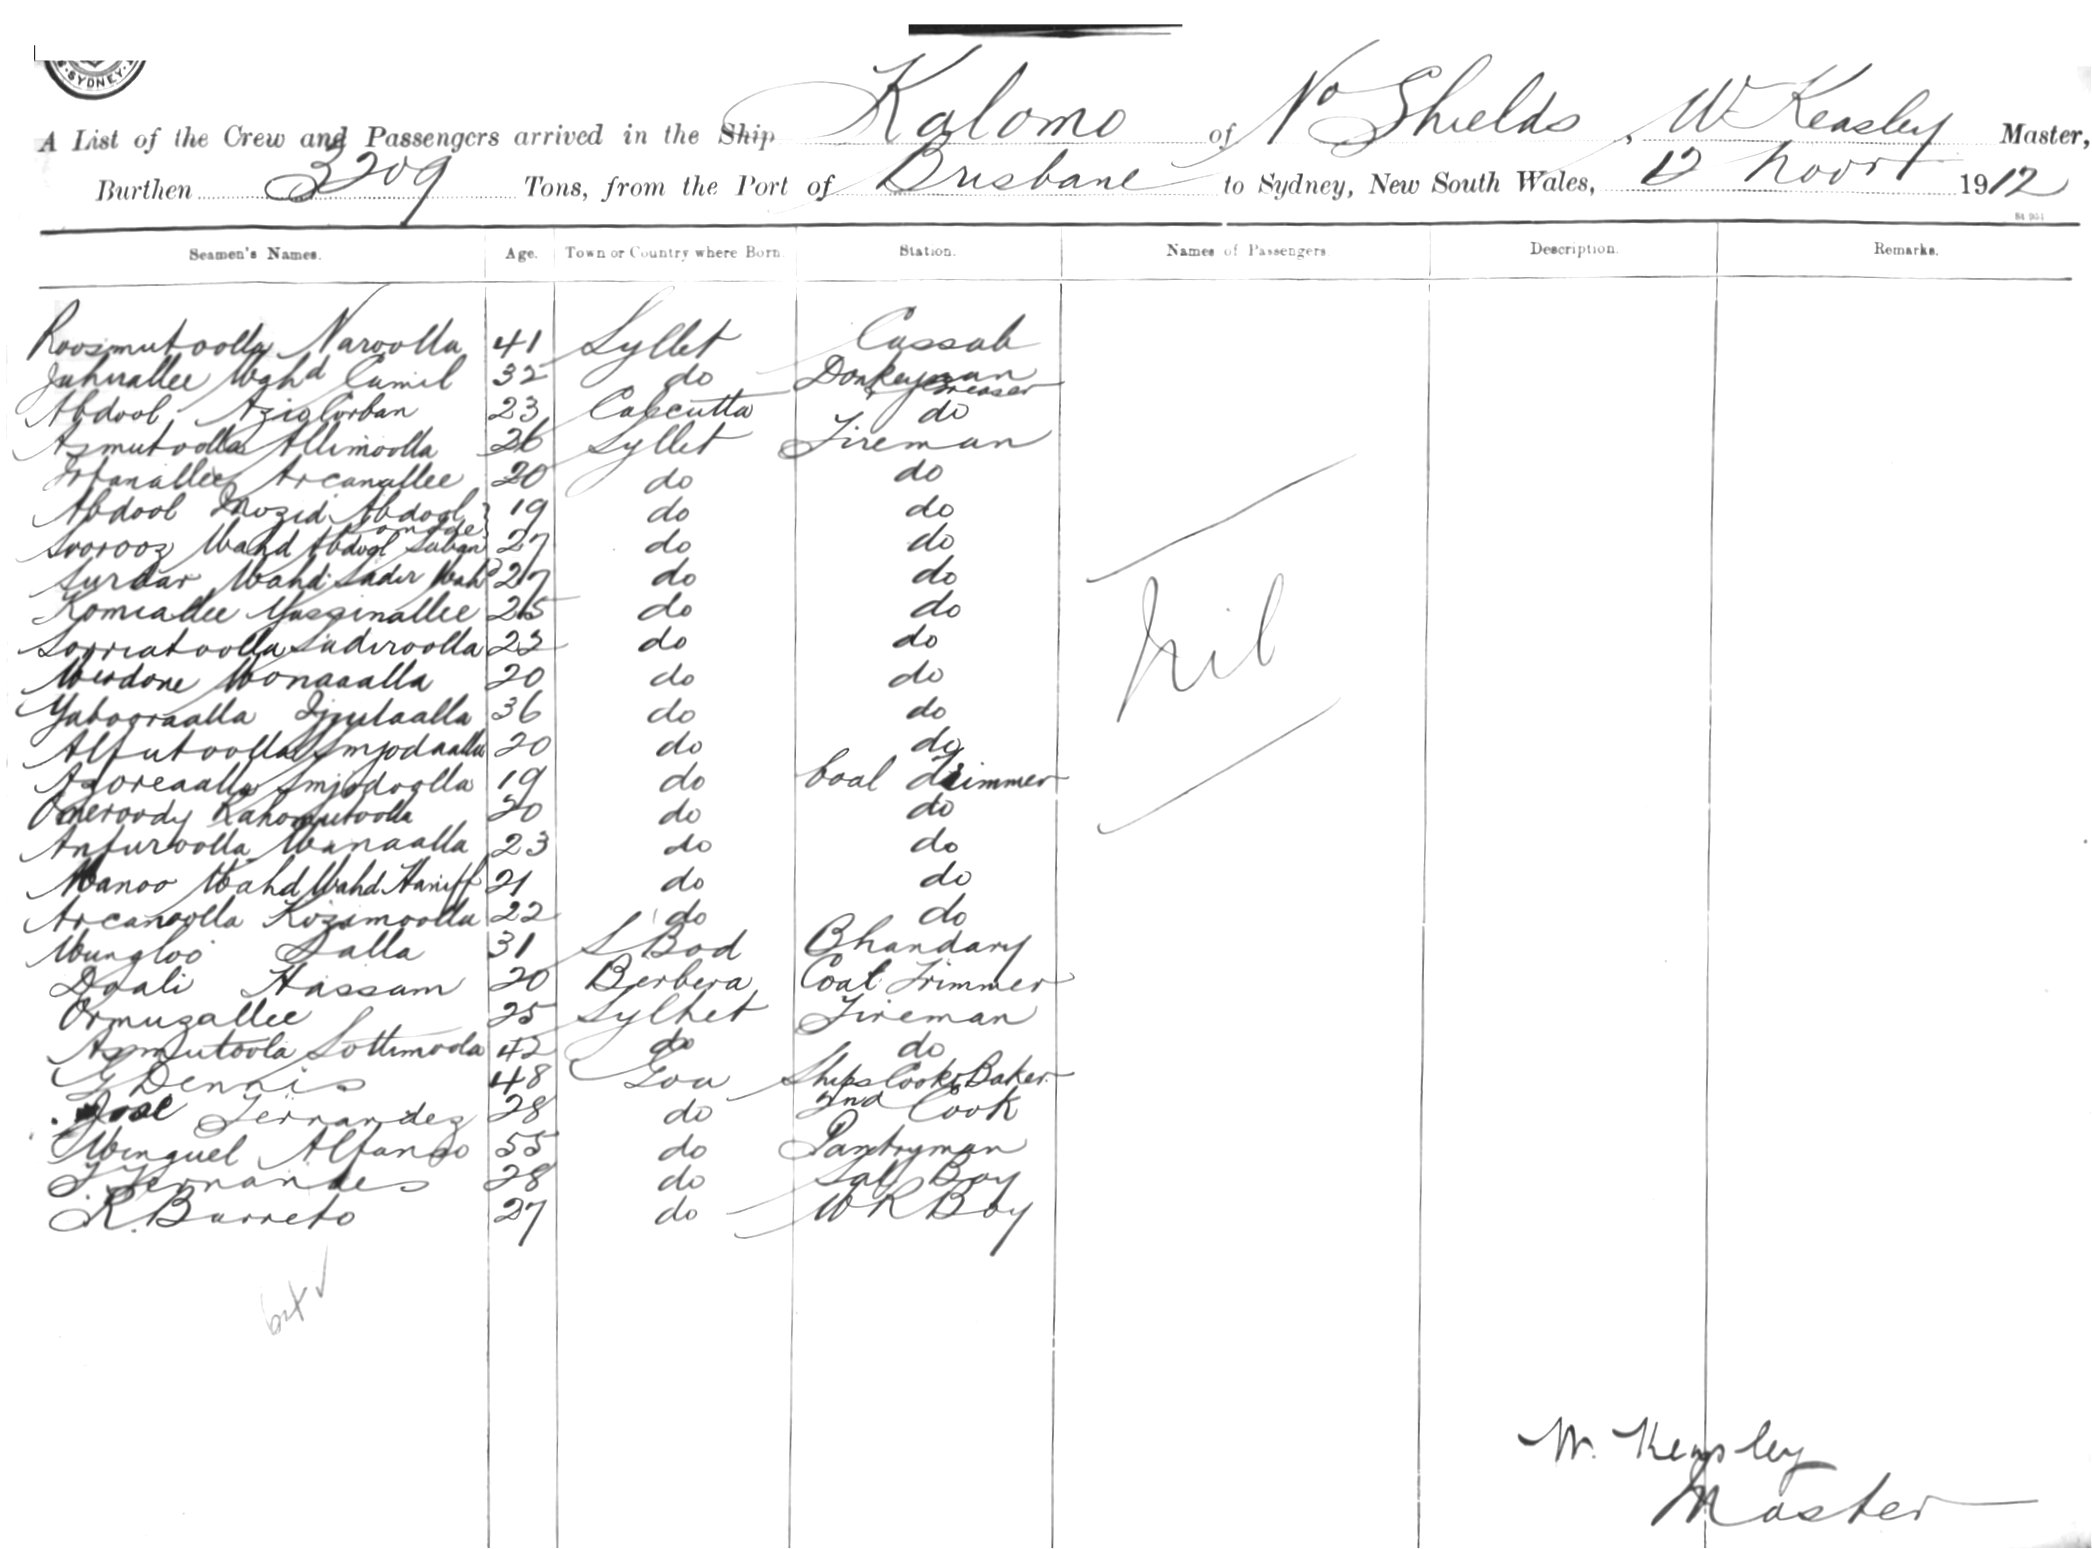 SYDNEY
A List of the Crew and Passengers arrived in the Ship Kalomo of No Shields, W Keasley Master,
Burthen 3209 Tons, from the Port of Brisbane to Sydney, New South Wales, 12 1912
Seamen's Names. Age. Town or Country where Born. Station. Names of Passengers. Description. Remarks.
Roosmutoolla Naroolla 41 Syllet Cassab
Juhurallee Wahd Camil 32 do Donkeyman Greaser
Abdool Aziz Corban 23 Calcutta do
Azmutoolla Allimoolla 26 Syllet Fireman
Arcanallee 20 do do
Abdool Mozid Abdool Somode 19 do do
Soorooz Wahd Abdool Suban 27 do do
Surdar Wahd Sadir Wahd 27 do do
Komrallee Yassinallee 25 do do
Sorriatoolla Sadiroolla 23 do do
Monaaalla 20 do do
Yabooraalla 36 do do
Alfutoolla Amjodaalla 20 do do
Azoreaalla Amjodoolla 19 do Coal Trimmer
20 do do
Anfuroolla Munaalla 23 do do
Manoo Wahd Wahd Haniff 21 do do
Arcanoolla Kozamoolla 22 do do
Mungloo Dalla 31 S Bad Bhandary
Daali Hassam 20 Berbera Coal Trimmer
Ormuzallee 25 Sylhet Fireman
Azmutoola Lottimoola 42 do do
G Dennis 48 Goa Ships Cook & Baker
Jose Fernandez 28 do 2nd Cook
Minguel Alfanso 55 do Pantryman
Fernandes 28 do Sal Boy
R. Barreto 27 do W R Boy
Nil
W. Kempsley
Master